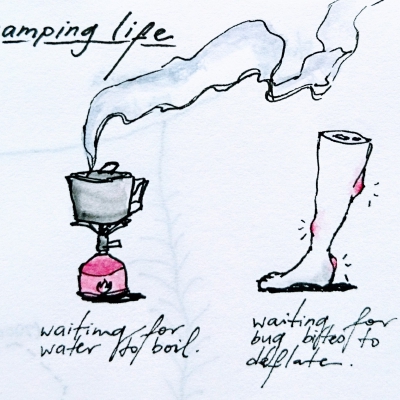 amping life
waiting for
water to boil.
waiting for
bug bites to
deflate.